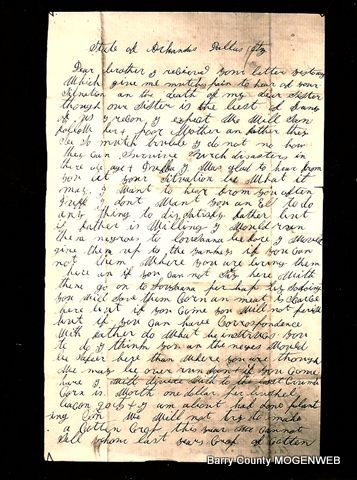 State of Arkansas Dallas Cty
Dear brother I recieved your letter
Which give me mutch pain to hear of your
Situation an the death of my dear Sister
though our Sister is the best of
of us I recon I expect We Will
her & poor Mother an father they
See so much truble I do not no how
they can Survive Such disasters in
there old age I Was glad to hear from
you let your Situation be What it
may I Want to hear from you often
I dont Want you an to do
any thing to father but
if father is Willing I Would run
them negroes to before I Would
give them up to the yankees if you can
not them Where you are bring them
here an if you can not Stay here With
them go on to perhaps by So doing
you Will Save them Corn an meat is Scarce
here but if you Come you Will not
but if you Can have Correspondence
With father do What he instructs you
to do I think you an the negroes Would
be Safer here than Where you are though
We may be over run dont if you Come
here I Will divide With to the last
Corn is Worth one dollar per bushel
bacon I am about had done plant
ing Corn We Will not try to made
a Cotton Crop this year We Cannot
Sell our last years Crop of Cotten
Barry County MOGENWEB